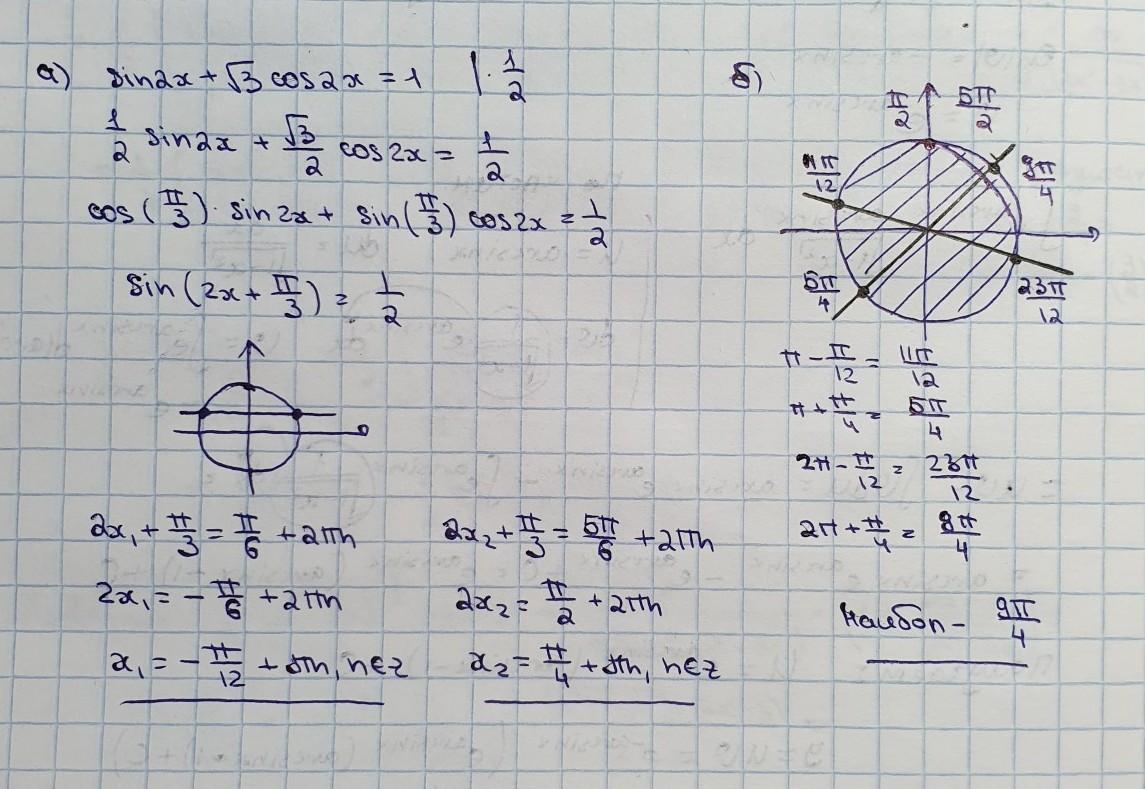 а) sin2x + √3 cos2x = 1 | · 1/2
1/2 sin2x + √3/2 cos2x = 1/2
cos(π/3) · sin2x + sin(π/3) cos2x = 1/2
sin(2x + π/3) = 1/2
2x₁ + π/3 = π/6 + 2πn
2x₁ = -π/6 + 2πn
x₁ = -π/12 + πn, n∈z
2x₂ + π/3 = 5π/6 + 2πn
2x₂ = π/2 + 2πn
x₂ = π/4 + πn, n∈z
б)
π/2 5π/2
11π/12 9π/4
5π/4 23π/12
π - π/12 = 11π/12
π + π/4 = 5π/4
2π - π/12 = 23π/12
2π + π/4 = 9π/4
наибол - 9π/4